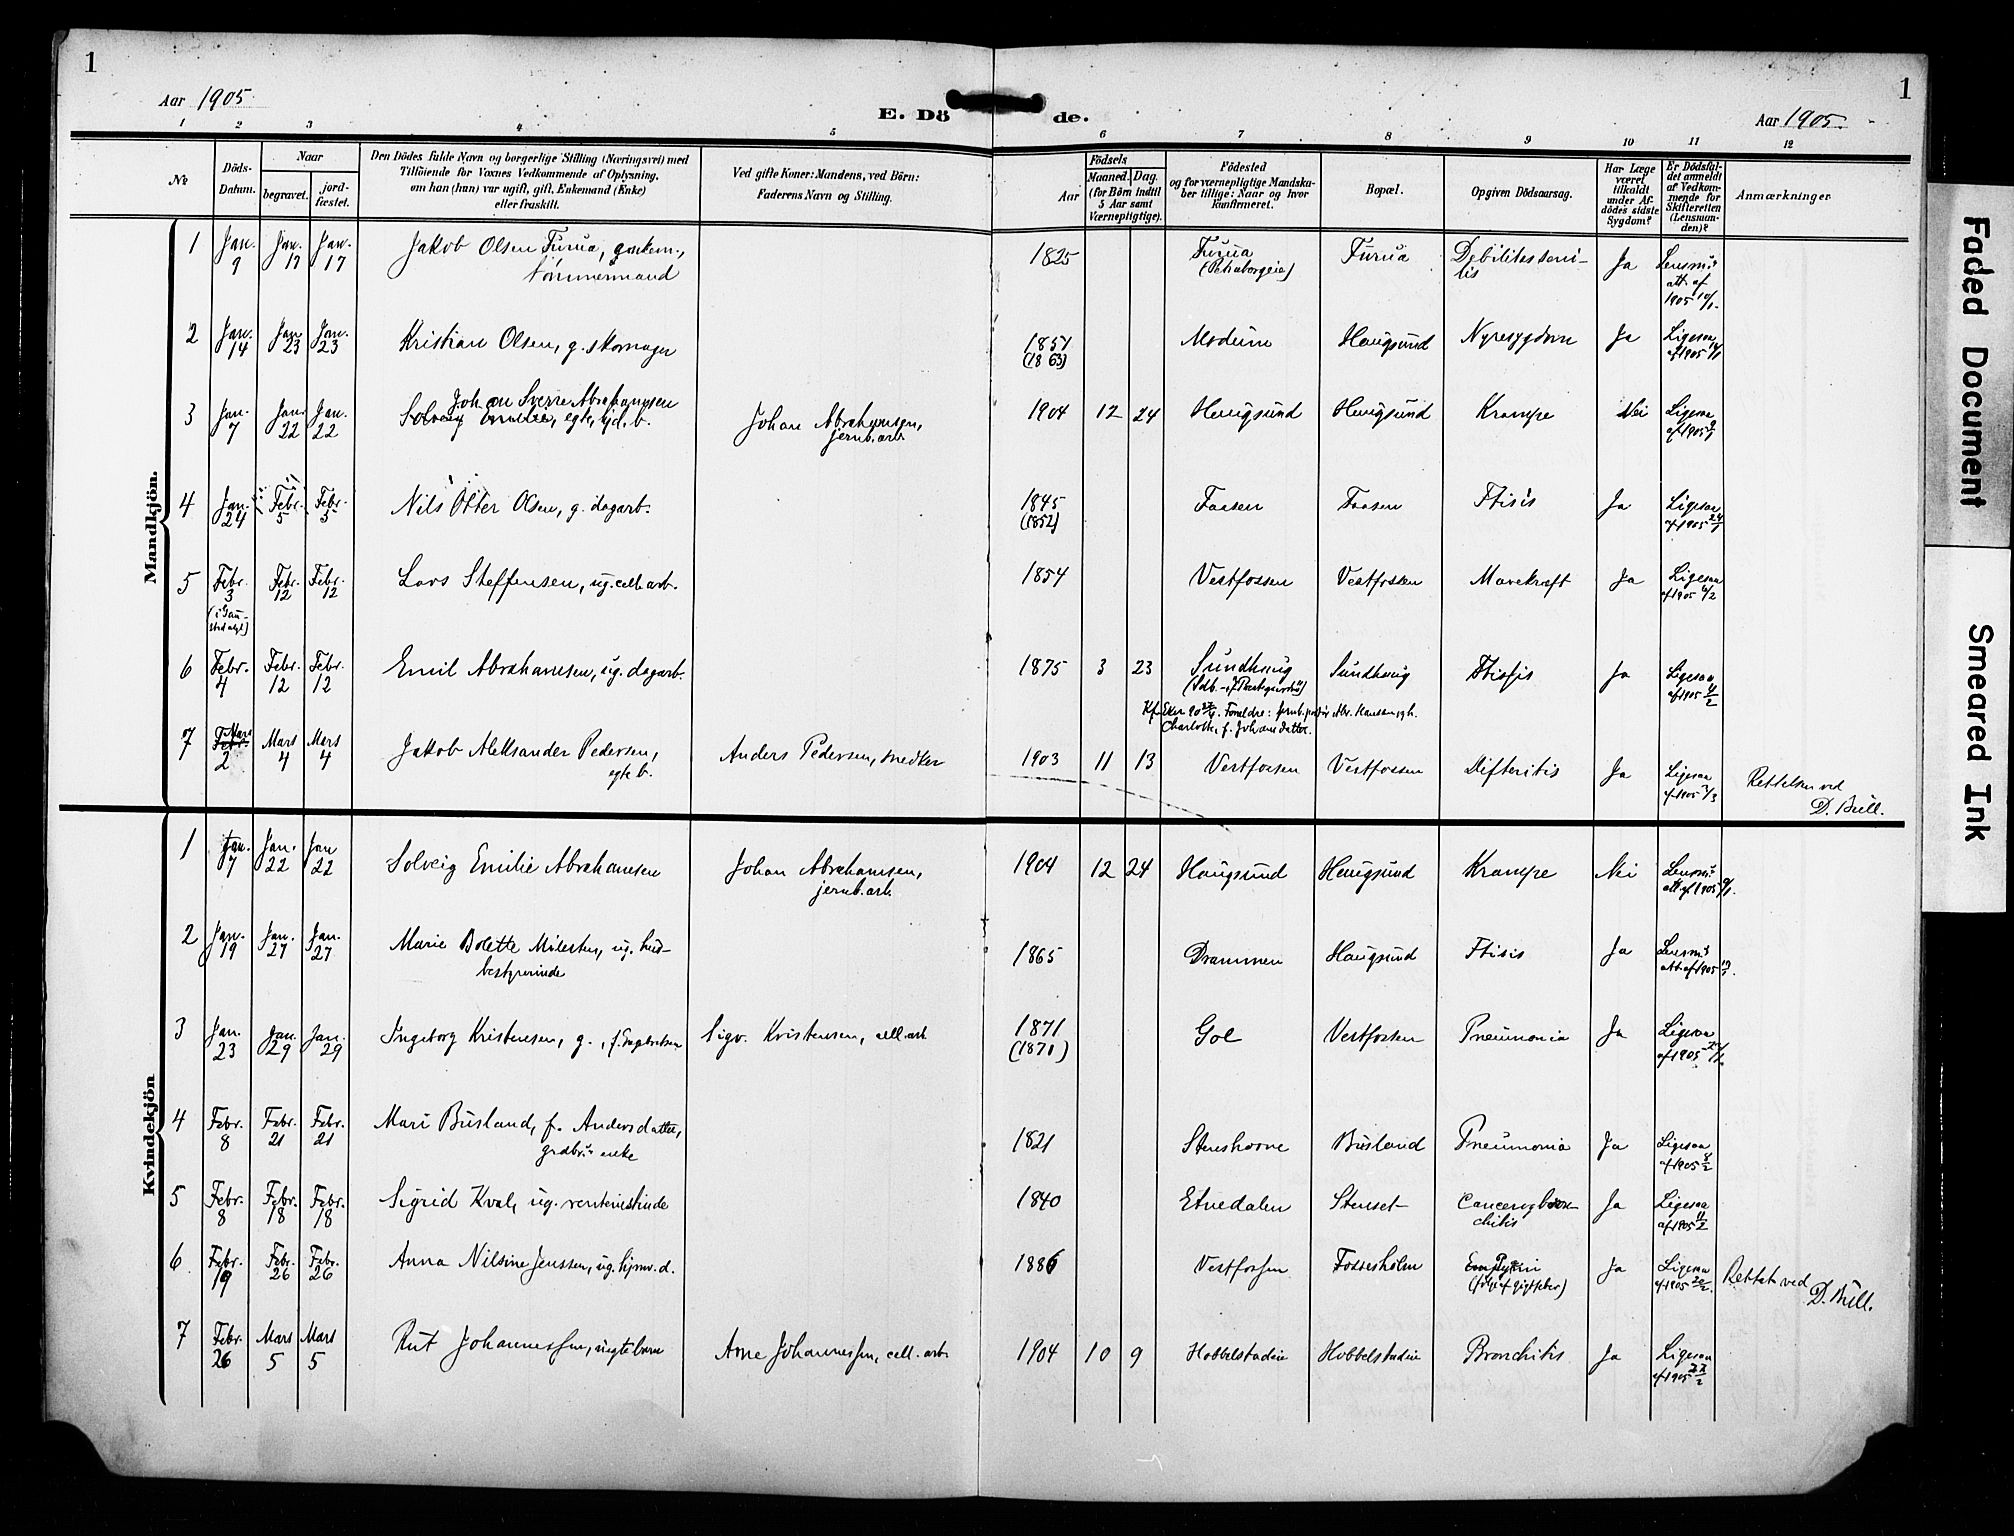 1
1
Aar 1905
E. Dö de.
Aar 1905.
1 2 3 4 5 6 7 8 9 10 11 12
№
Döds-
Datum.
Naar
begravet.
jord-
fæstet.
Den Dödes fulde Navn og borgerlige Stilling (Næringsvei) med
Tilföiende for Voxnes Vedkommende af Oplysning,
om han (hun) var ugift, gift, Enkemand (Enke)
eller fraskilt.
Ved gifte Koner: Mandens, ved Börn:
Faderens Navn og Stilling.
Födsels
Aar
Maaned.
Dag.
(for Börn indtil
5 Aar samt
Værnepligtige).
Födested
og for værnepligtige Mandska-
ber tillige: Naar og hvor
konfirmeret.
Bopæl.
Opgiven Dödsaarsag.
Har Læge
været
tilkaldt
under Af-
dödes sidste
Sygdom?
Er Dödsfal-
det anmeldt
af Vedkom-
mende for
Skifteretten
(Lensman-
den)?
Anmærkninger
Mandkjön.
1 Jan. 9 Jan. 17 Jan. 17 Jakob Olsen Furua, tömmermand 1825 Furua Furua Debilitas seni-
lis Ja Lensm's
att. af
1905 10/1.
2 Jan. 14 Jan. 23 Jan. 23 Kristian Olsen, g. skomager 1857
(1863) Modum Haugsund Nyresygdom Ja Ligesaa
af 1905 14/1
3 Jan. 7 Jan. 22 Jan. 22 Johan Sverre Abrahamsen
Solveig Emilie, egte, tjd. b. Johan Abrahamsen,
jernb. arb. 1904 12 24 Haugsund Haugsund Krampe Nei Ligesaa
af 1905 9/1
4 Jan. 24 Febr. 5 Febr. 5 Nils Otter Olsen, g. dagarb. 1845
(1852) Faasen Faasen Ftisis Ja Ligesaa
af 1905 24/1
5 Febr. 3 Febr. 12 Febr. 12 Lars Steffensen, ug. cell. arb. 1854 Vestfossen Vestfossen Mavekræft Ja Ligesaa
af 1905 6/2
(i Gau-
stad asyl)
6 Febr. 4 Febr. 12 Febr. 12 Emil Abrahamsen, ug. dagarb. 1875 3 23 Sundhaug Sundhaug Ftisis Ja Ligesaa
af 1905 4/2
Kf. Eker 90 27/4. Foreldre: Abr. Hansen og h.
Charlotte, f. Johansdatter.
7 Febr. Mars 2 Mars 4 Mars 4 Jakob Aleksander Pedersen,
egte b. Anders Pedersen, snedker 1903 11 13 Vestfossen Vestfossen Difteritis Ja Ligesaa
af 1905 3/3 Rettelsen ved
D. Bull.
Kvindekjön
1 Jan. 7 Jan. 22 Jan. 22 Solveig Emilie Abrahamsen Johan Abrahamsen,
jernb. arb. 1904 12 24 Haugsund Haugsund Krampe Nei Lensm's
att. af 1905 9/1.
2 Jan. 19 Jan. 27 Jan. 27 Marie Bolette ug. hus-
bestyrerinde 1865 Drammen Haugsund Ftisis Ja Lensm's
att. af 1905 19/1.
3 Jan. 23 Jan. 29 Jan. 29 Ingeborg Kristensen, g., f. Engebretsen Sigv. Kristensen, cell. arb. 1871
(1871) Gol Vestfossen Pneumonia Ja Ligesaa
af 1905
4 Febr. 8 Febr. 21 Febr. 21 Mari Busland, f. Andersdatter,
grdbr.s enke 1821 Stenshorne Busland Pneumonia Ja Ligesaa
af 1905 8/2
5 Febr. 8 Febr. 18 Febr. 18 Sigrid Kval, ug. rentenistinde 1840 Etnedalen Stenset Cancer og bron-
chitis Ja Ligesaa
af 1905 11/2
6 Febr. 19 Febr. 26 Febr. 26 Anna Nilsine Jenssen, ug. hjmv. d. 1886 Vestfossen Fossesholm (følge af gigtfeber) Ja Ligesaa
af 1905 20/2. Rettet ved
D. Bull.
7 Febr. 26 Mars 5 Mars 5 Rut Johannessen, uegte barn Arne Johannessen, cell. arb. 1904 10 9 Hobbelstadeie Hobbelstadeie Bronchitis Ja Ligesaa
af 1905 27/2
Faded Document
Smeared Ink